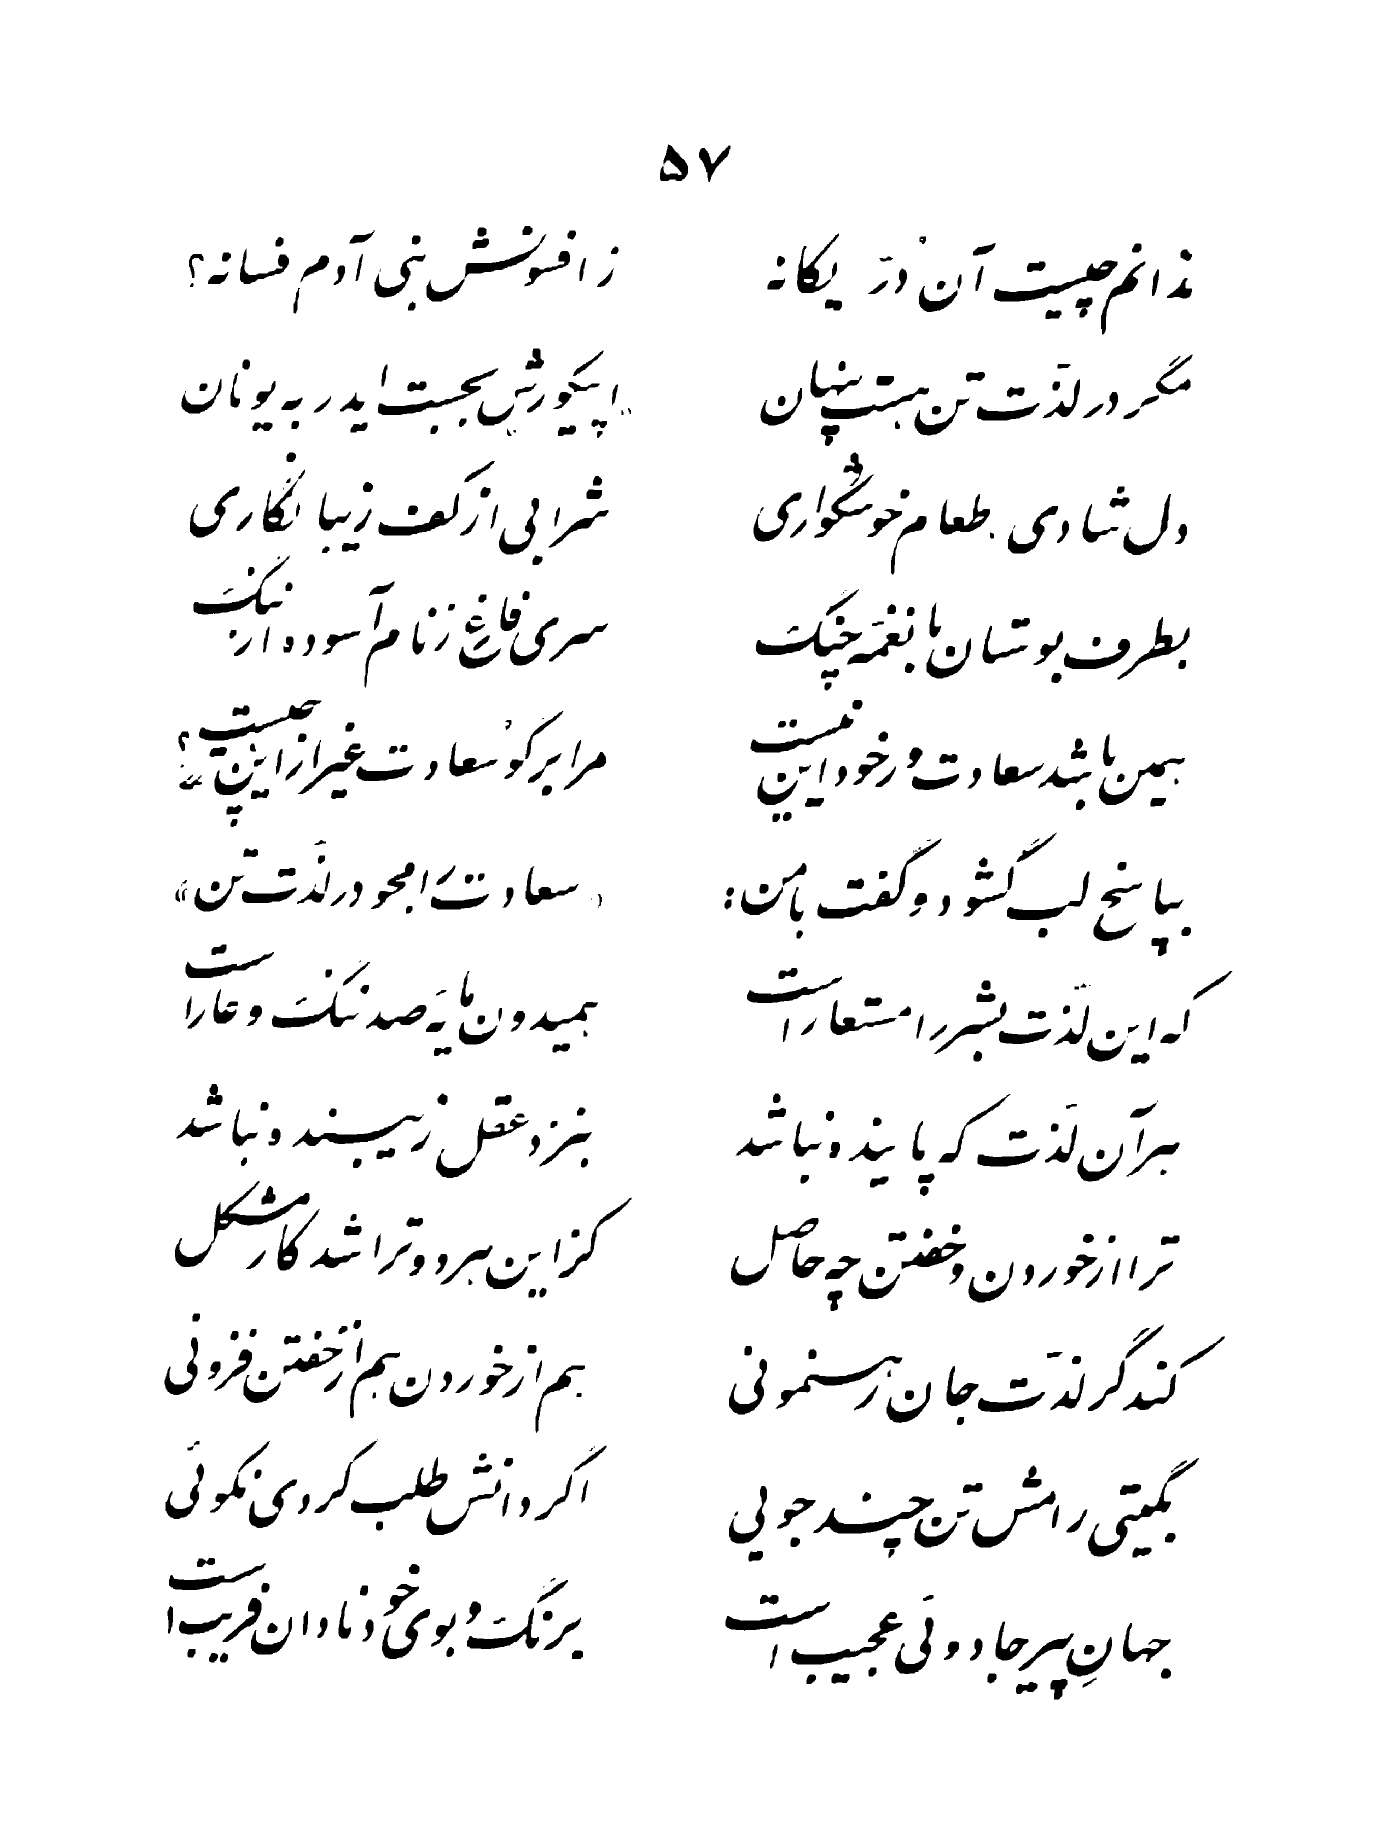 ۵۷
ندانم چیست آن دُرّ یگانه ز افسونش بنی آدم فسانه؟
مگر در لذّت تن هست پنهان "اپیکورش" بجست ایدر به یونان
دل شادی بطعام خوشگواری شرابی از کف زیبا نگاری
بطرف بوستان با نغمهٔ چنگ سری فارغ ز نام آسوده از ننگ
همین باشد سعادت ور خود این نیست مرا برگو سعادت غیر ازین چیست؟»
بپاسخ لب گشود و گفت با من: «سعادت را مجو در لذّت تن»
که این لذّت بشر را مستعار است همیدون مایهٔ صد ننگ و عار است
هر آن لذّت که پاینده نباشد بنزد عقل زیبنده نباشد
ترا از خوردن و خفتن چه حاصل کز این هر دو ترا شد کار مشکل
کند گر لذّت جان رهنمونی هم از خوردن هم از خفتن فزونی
بگیتی رامش تن چند جویی اگر دانش طلب کردی نکوئی
جهانِ پیر جادوئی عجیب است برنگ و بوی خود نادان فریب است